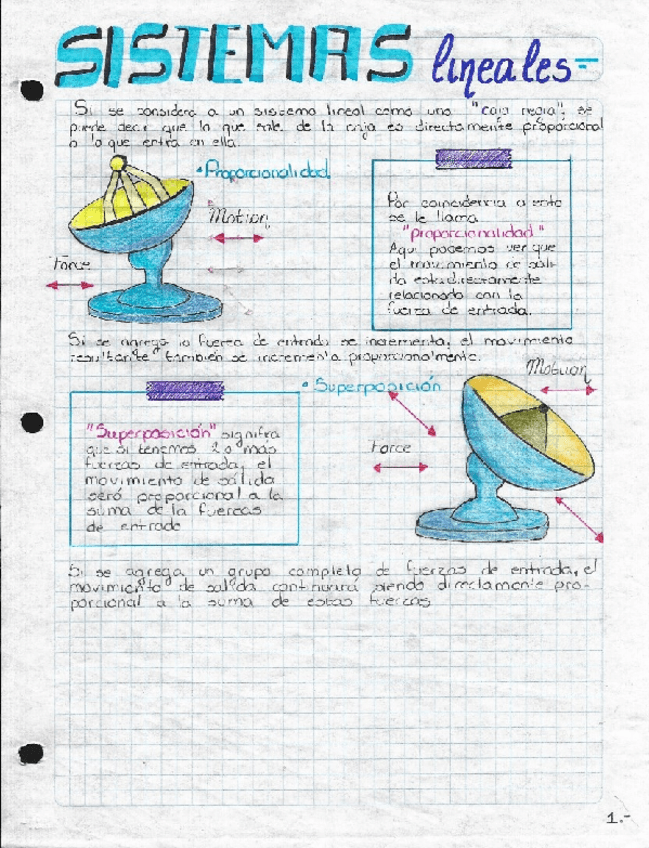 SISTEMAS lineales-
Si se considera a un sistema lineal como una "caja negra", se
puede decir que lo que sale de la caja es directamente proporcional
a lo que entra en ella.
• Proporcionalidad
Motion
Force
Por coincidencia a esto
se le llama
"proporcionalidad"
Aqui podemos ver que
el movimiento de sali-
da esta directamente
relacionado con la
fuerza de entrada.
Si se agrega la fuerza de entrada se incrementa, el movimiento
resultante también se incrementa proporcionalmente.
• Superposición
Motion
Force
"Superposición" signifca
que si tenemos 2 o más
fuerzas de entrada, el
movimiento de salida
seró proporcional a la
suma de la fuerzas
de entrada
Si se agrega un grupo completo de fuerzas de entrada, el
movimiento de salida continuará siendo directamente pro-
porcional a la suma de estas fuerzas
1.-